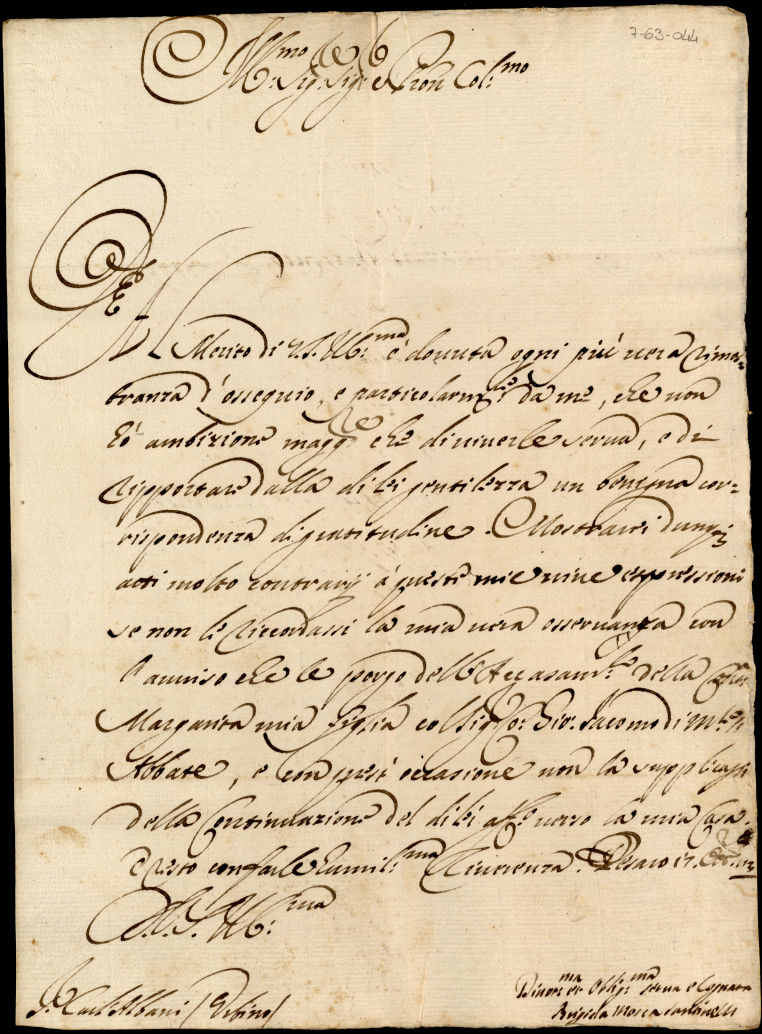 7-63-044
Ill:mo Sig: Sig:re e Pron Col:mo
Al Merito di V.S. Ill:ma è dovuta ogni più vera rimos=
tranza d'ossequio, e particolarm:te da me, che non
hò ambizione magg:re che di viverle serva, e di
rapportare dalla di lei gentilezza un benigna cor=
rispondenza di gratitudine. Mostrarei dunq;
atti molto contrarij à queste mie vive espressioni
se non le riccordassi la mia vera osservanza con
l'avviso che le porgo dell'Accasam:to della
Margarita mia figlia col Sig: Co: Gio: Iacomo di
Abbate, e con quest'occasione non la supplicassi
della Continuazione del di lei aff:o verso la mia Casa.
E resto con farle humil:ma riverenza. Pesaro
D. V. S. Ill:ma
S: Carl: Albani (Urbino)
Divot:ma et Oblig:ma serva e Comara
Brigida Mosca Santinelli